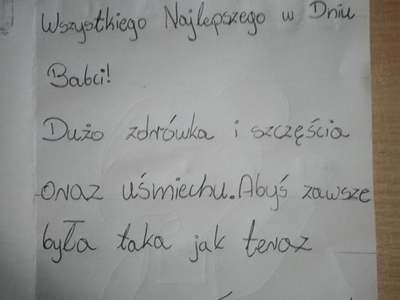 Wszystkiego Najlepszego w Dniu
Babci!
Dużo zdrówka i szczęścia
oraz uśmiechu. Abyś zawsze
była taka jak teraz